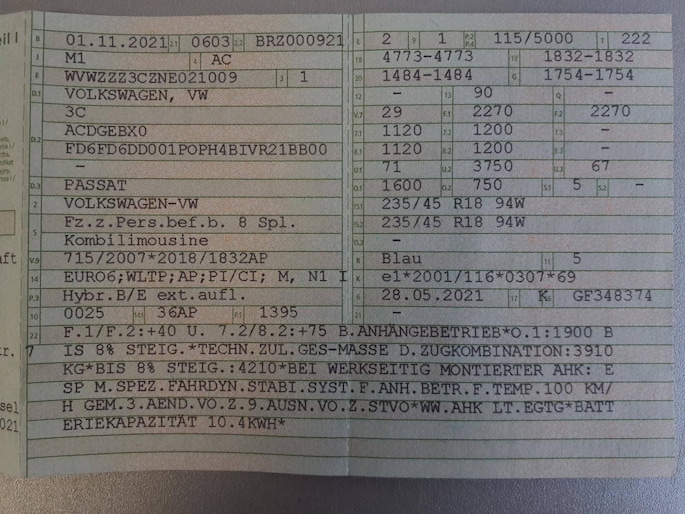 B 01.11.2021 2.1 0603 2.2 BRZ000921 L 2 9 1 P.2 P.4 115/5000 T 222
J M1 4 AC 18 4773-4773 19 1832-1832
E WVWZZZ3CZNE021009 3 1 20 1484-1484 G 1754-1754
D.1 VOLKSWAGEN, VW 12 – 13 90 Q –
3C V.7 29 F.1 2270 F.2 2270
D.2 ACDGEBX0 7.1 1120 7.2 1200 7.3 –
FD6FD6DD001POPH4BIVR21BB00 8.1 1120 8.2 1200 8.3 –
– U.1 71 U.2 3750 U.3 67
D.3 PASSAT O.1 1600 O.2 750 S.1 5 S.2 –
2 VOLKSWAGEN-VW 15.1 235/45 R18 94W
5 Fz.z.Pers.bef.b. 8 Spl. 15.2 235/45 R18 94W
Kombilimousine 15.3 –
V.9 715/2007*2018/1832AP R Blau 11 5
14 EURO6;WLTP;AP;PI/CI; M, N1 I K e1*2001/116*0307*69
P.3 Hybr.B/E ext.aufl. 6 28.05.2021 17 K 16 GF348374
10 0025 14.1 36AP P.1 1395 21 –
22 F.1/F.2:+40 U. 7.2/8.2:+75 B.ANHÄNGEBETRIEB*O.1:1900 B
IS 8% STEIG.*TECHN.ZUL.GES-MASSE D.ZUGKOMBINATION:3910
KG*BIS 8% STEIG.:4210*BEI WERKSEITIG MONTIERTER AHK: E
SP M.SPEZ.FAHRDYN.STABI.SYST.F.ANH.BETR.F.TEMP.100 KM/
H GEM.3.AEND.VO.Z.9.AUSN.VO.Z.STVO*WW.AHK LT.EGTG*BATT
ERIEKAPAZITÄT 10.4KWH*